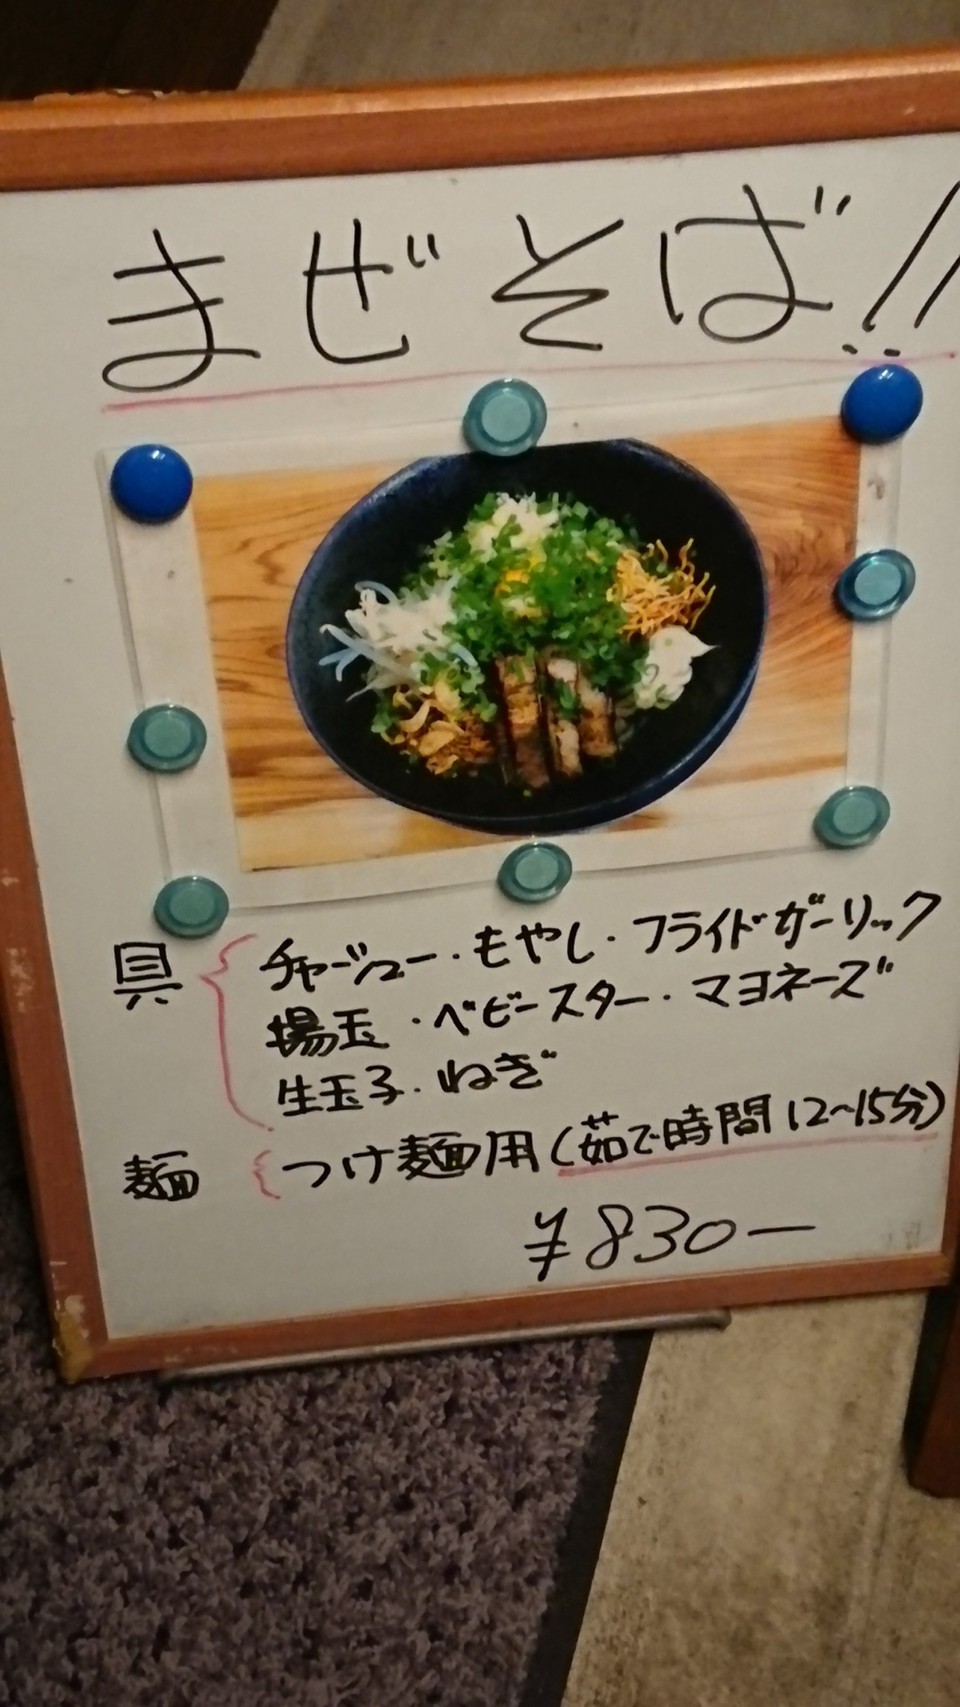 まぜそば!!
具 チャーシュー・もやし・フライドガーリック
揚玉・ベビースター・マヨネーズ
生玉子・ねぎ
麺 つけ麺用(茹で時間12~15分)
¥830ー